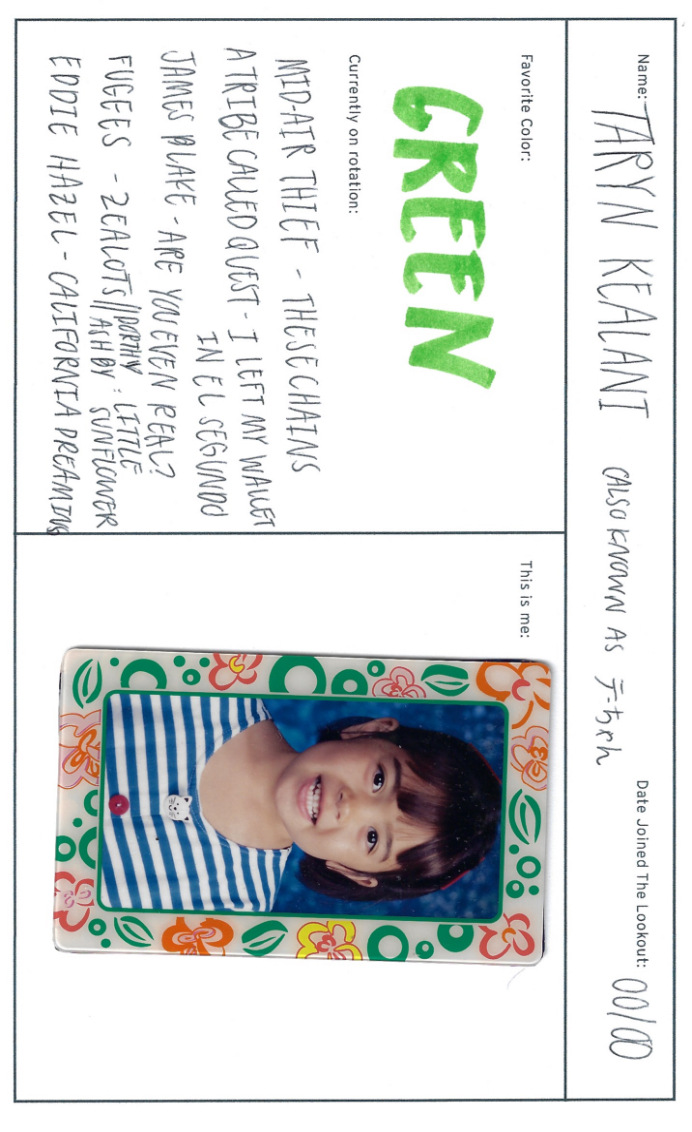 Name: TARYN KEALANI (ALSO KNOWN AS テちゃん
Date Joined The Lookout: 00/00
Favorite Color:
GREEN
Currently on rotation:
MID-AIR THIEF - THESE CHAINS
A TRIBE CALLED QUEST - I LEFT MY WALLET
IN EL SEGUNDO
JAMES BLAKE - ARE YOU EVEN REAL?
FUGEES - ZEALOTS // DORTHY
ASHBY : LITTLE
SUNFLOWER
EDDIE HAZEL - CALIFORNIA DREAMING
This is me: